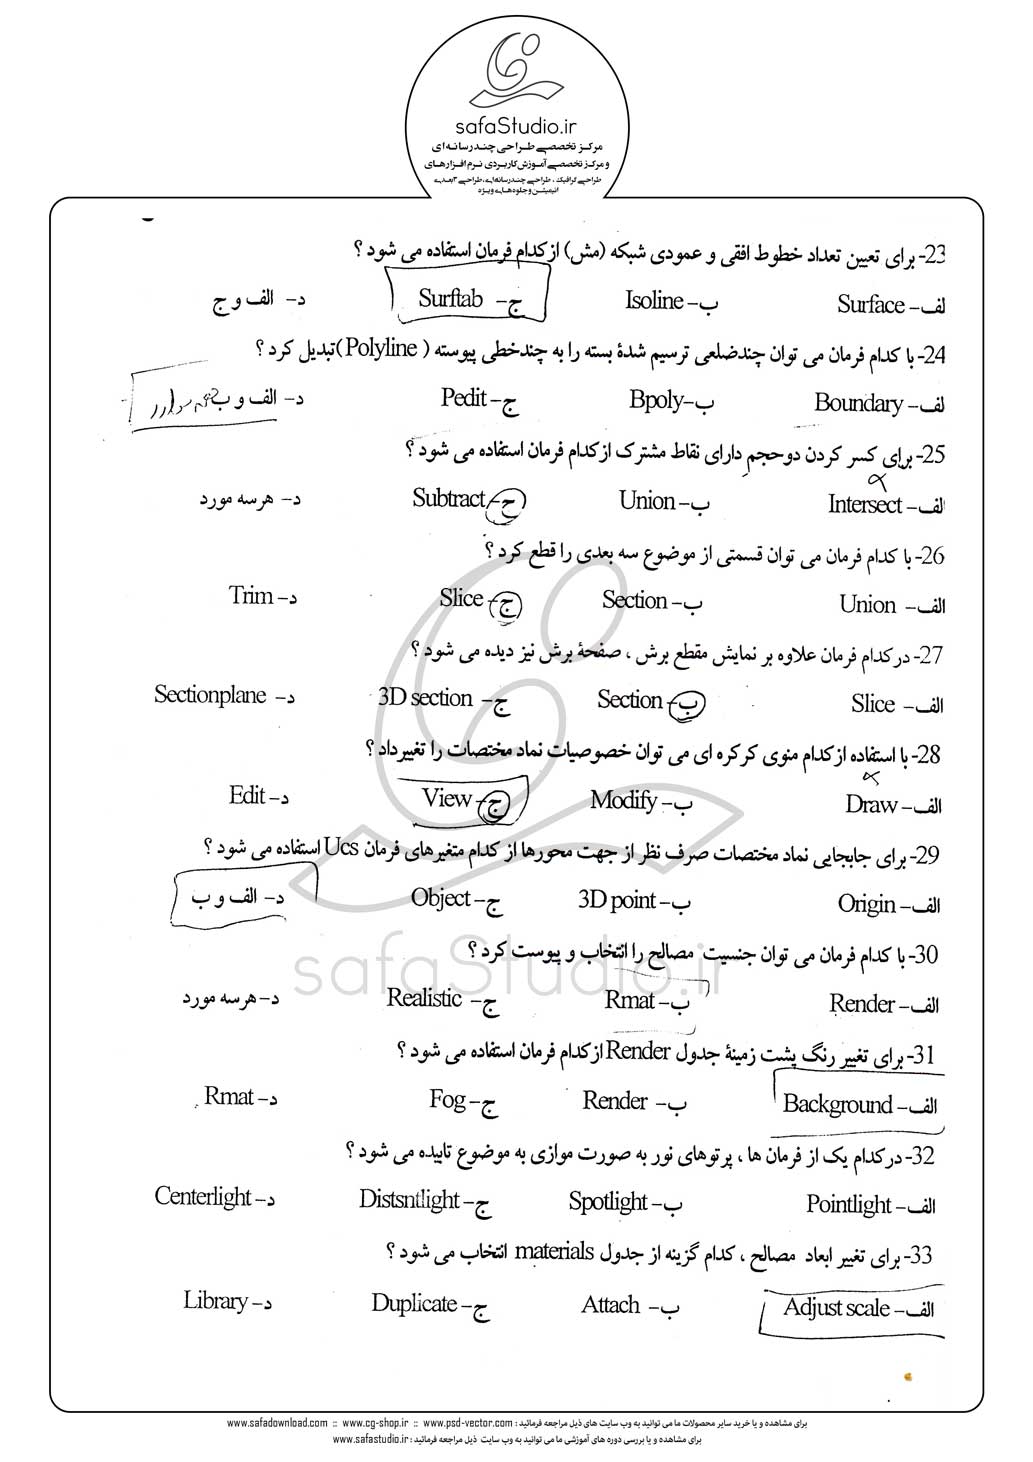 safaStudio.ir
مرکز تخصصی طراحی چندرسانه‌ای
و مرکز تخصصی آموزش کاربردی نرم افزارهای
طراحی گرافیک ، طراحی چندرسانه‌ای، طراحی ۳بعدی
انیمیشن و جلوه‌های ویژه
23- برای تعیین تعداد خطوط افقی و عمودی شبکه (مش) ازکدام فرمان استفاده می شود ؟
لف- Surface ب- Isoline ج- Surftab د- الف و ج
24- با کدام فرمان می توان چندضلعی ترسیم شدهٔ بسته را به چندخطی پیوسته ( Polyline)تبدیل کرد ؟
لف- Boundary ب- Bpoly ج- Pedit د- الف و ب
25- برای کسر کردن دوحجم دارای نقاط مشترک ازکدام فرمان استفاده می شود ؟
الف- Intersect ب- Union ج- Subtract د- هرسه مورد
26- با کدام فرمان می توان قسمتی از موضوع سه بعدی را قطع کرد ؟
الف- Union ب- Section ج- Slice د- Trim
27- درکدام فرمان علاوه بر نمایش مقطع برش ، صفحهٔ برش نیز دیده می شود ؟
الف- Slice ب- Section ج- 3D section د- Sectionplane
28- با استفاده ازکدام منوی کرکره ای می توان خصوصیات نماد مختصات را تغییرداد ؟
الف- Draw ب- Modify ج- View د- Edit
29- برای جابجایی نماد مختصات صرف نظر از جهت محورها از کدام متغیرهای فرمان Ucs استفاده می شود ؟
الف- Origin ب- 3D point ج- Object د- الف و ب
safaStudio.ir
30- با کدام فرمان می توان جنسیت مصالح را انتخاب و پیوست کرد ؟
الف- Render ب- Rmat ج- Realistic د- هرسه مورد
31- برای تغییر رنگ پشت زمینهٔ جدول Render ازکدام فرمان استفاده می شود ؟
الف- Background ب- Render ج- Fog د- Rmat
32- درکدام یک از فرمان ها ، پرتوهای نور به صورت موازی به موضوع تابیده می شود ؟
الف- Pointlight ب- Spotlight ج- Distsntlight د- Centerlight
33- برای تغییر ابعاد مصالح ، کدام گزینه از جدول materials انتخاب می شود ؟
الف- Adjust scale ب- Attach ج- Duplicate د- Library
برای مشاهده و یا خرید سایر محصولات ما می توانید به وب سایت های ذیل مراجعه فرمائید : www.safadownload.com :: www.cg-shop.ir :: www.psd-vector.com
برای مشاهده و یا بررسی دوره های آموزشی ما می توانید به وب سایت ذیل مراجعه فرمائید : www.safastudio.ir